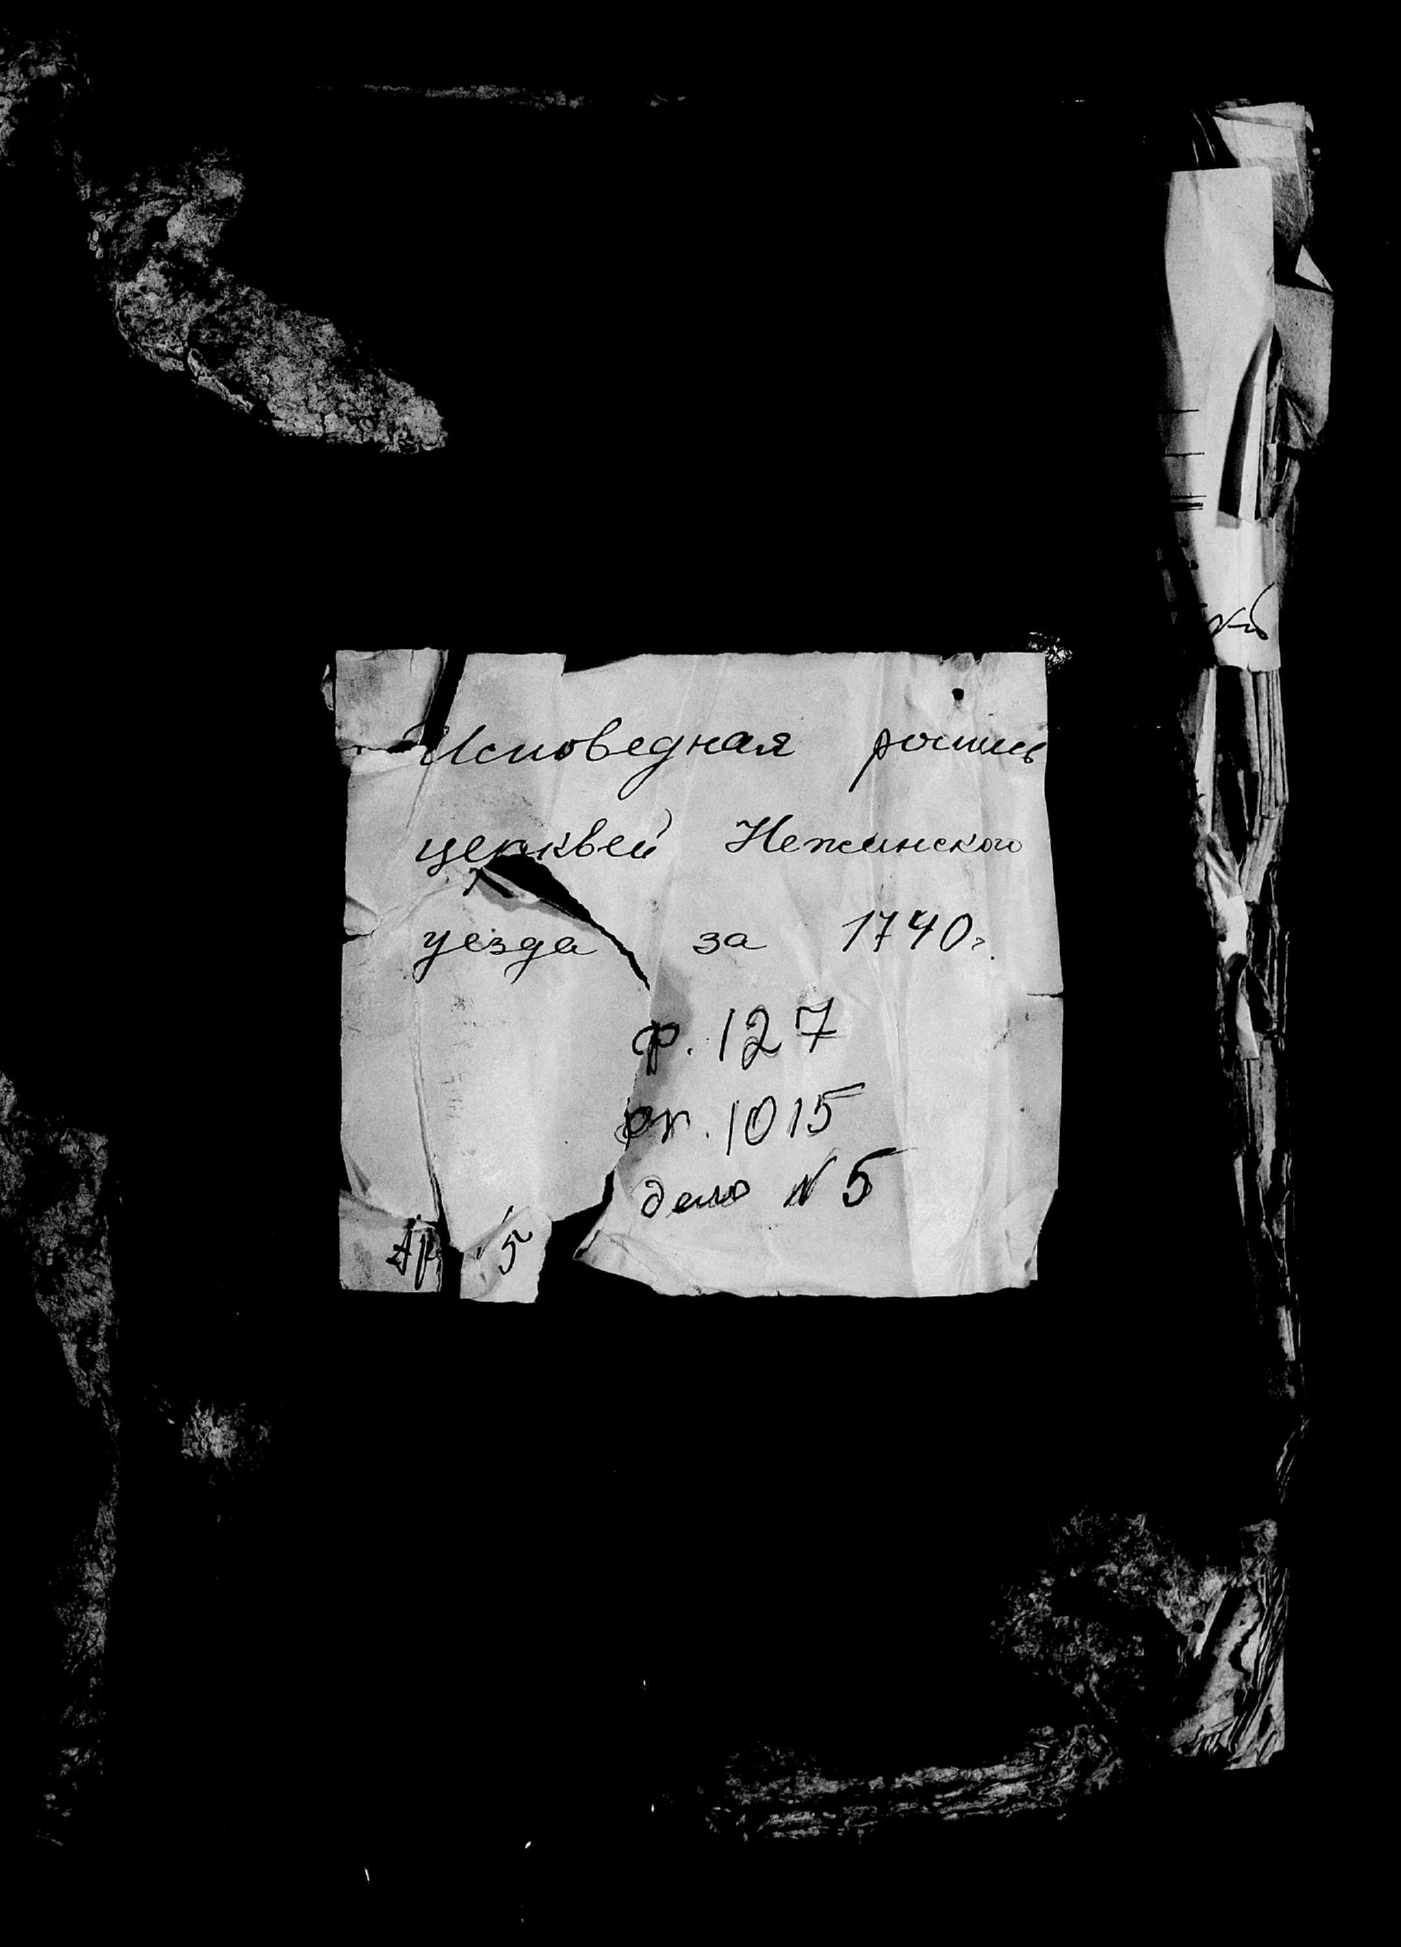 Исповедная роспись
церквей Нежинского
уезда за 1740г.
ф. 127
оп. 1015
дело №5
5